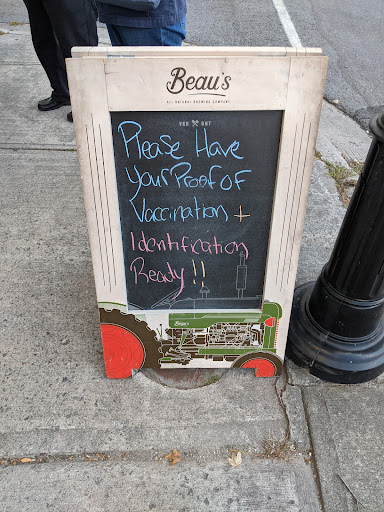 Beau's
ALL NATURAL BREWING COMPANY
VKH ONT
Please Have
Your Proof of
Vaccination +
Identification
Ready !!
Beau's